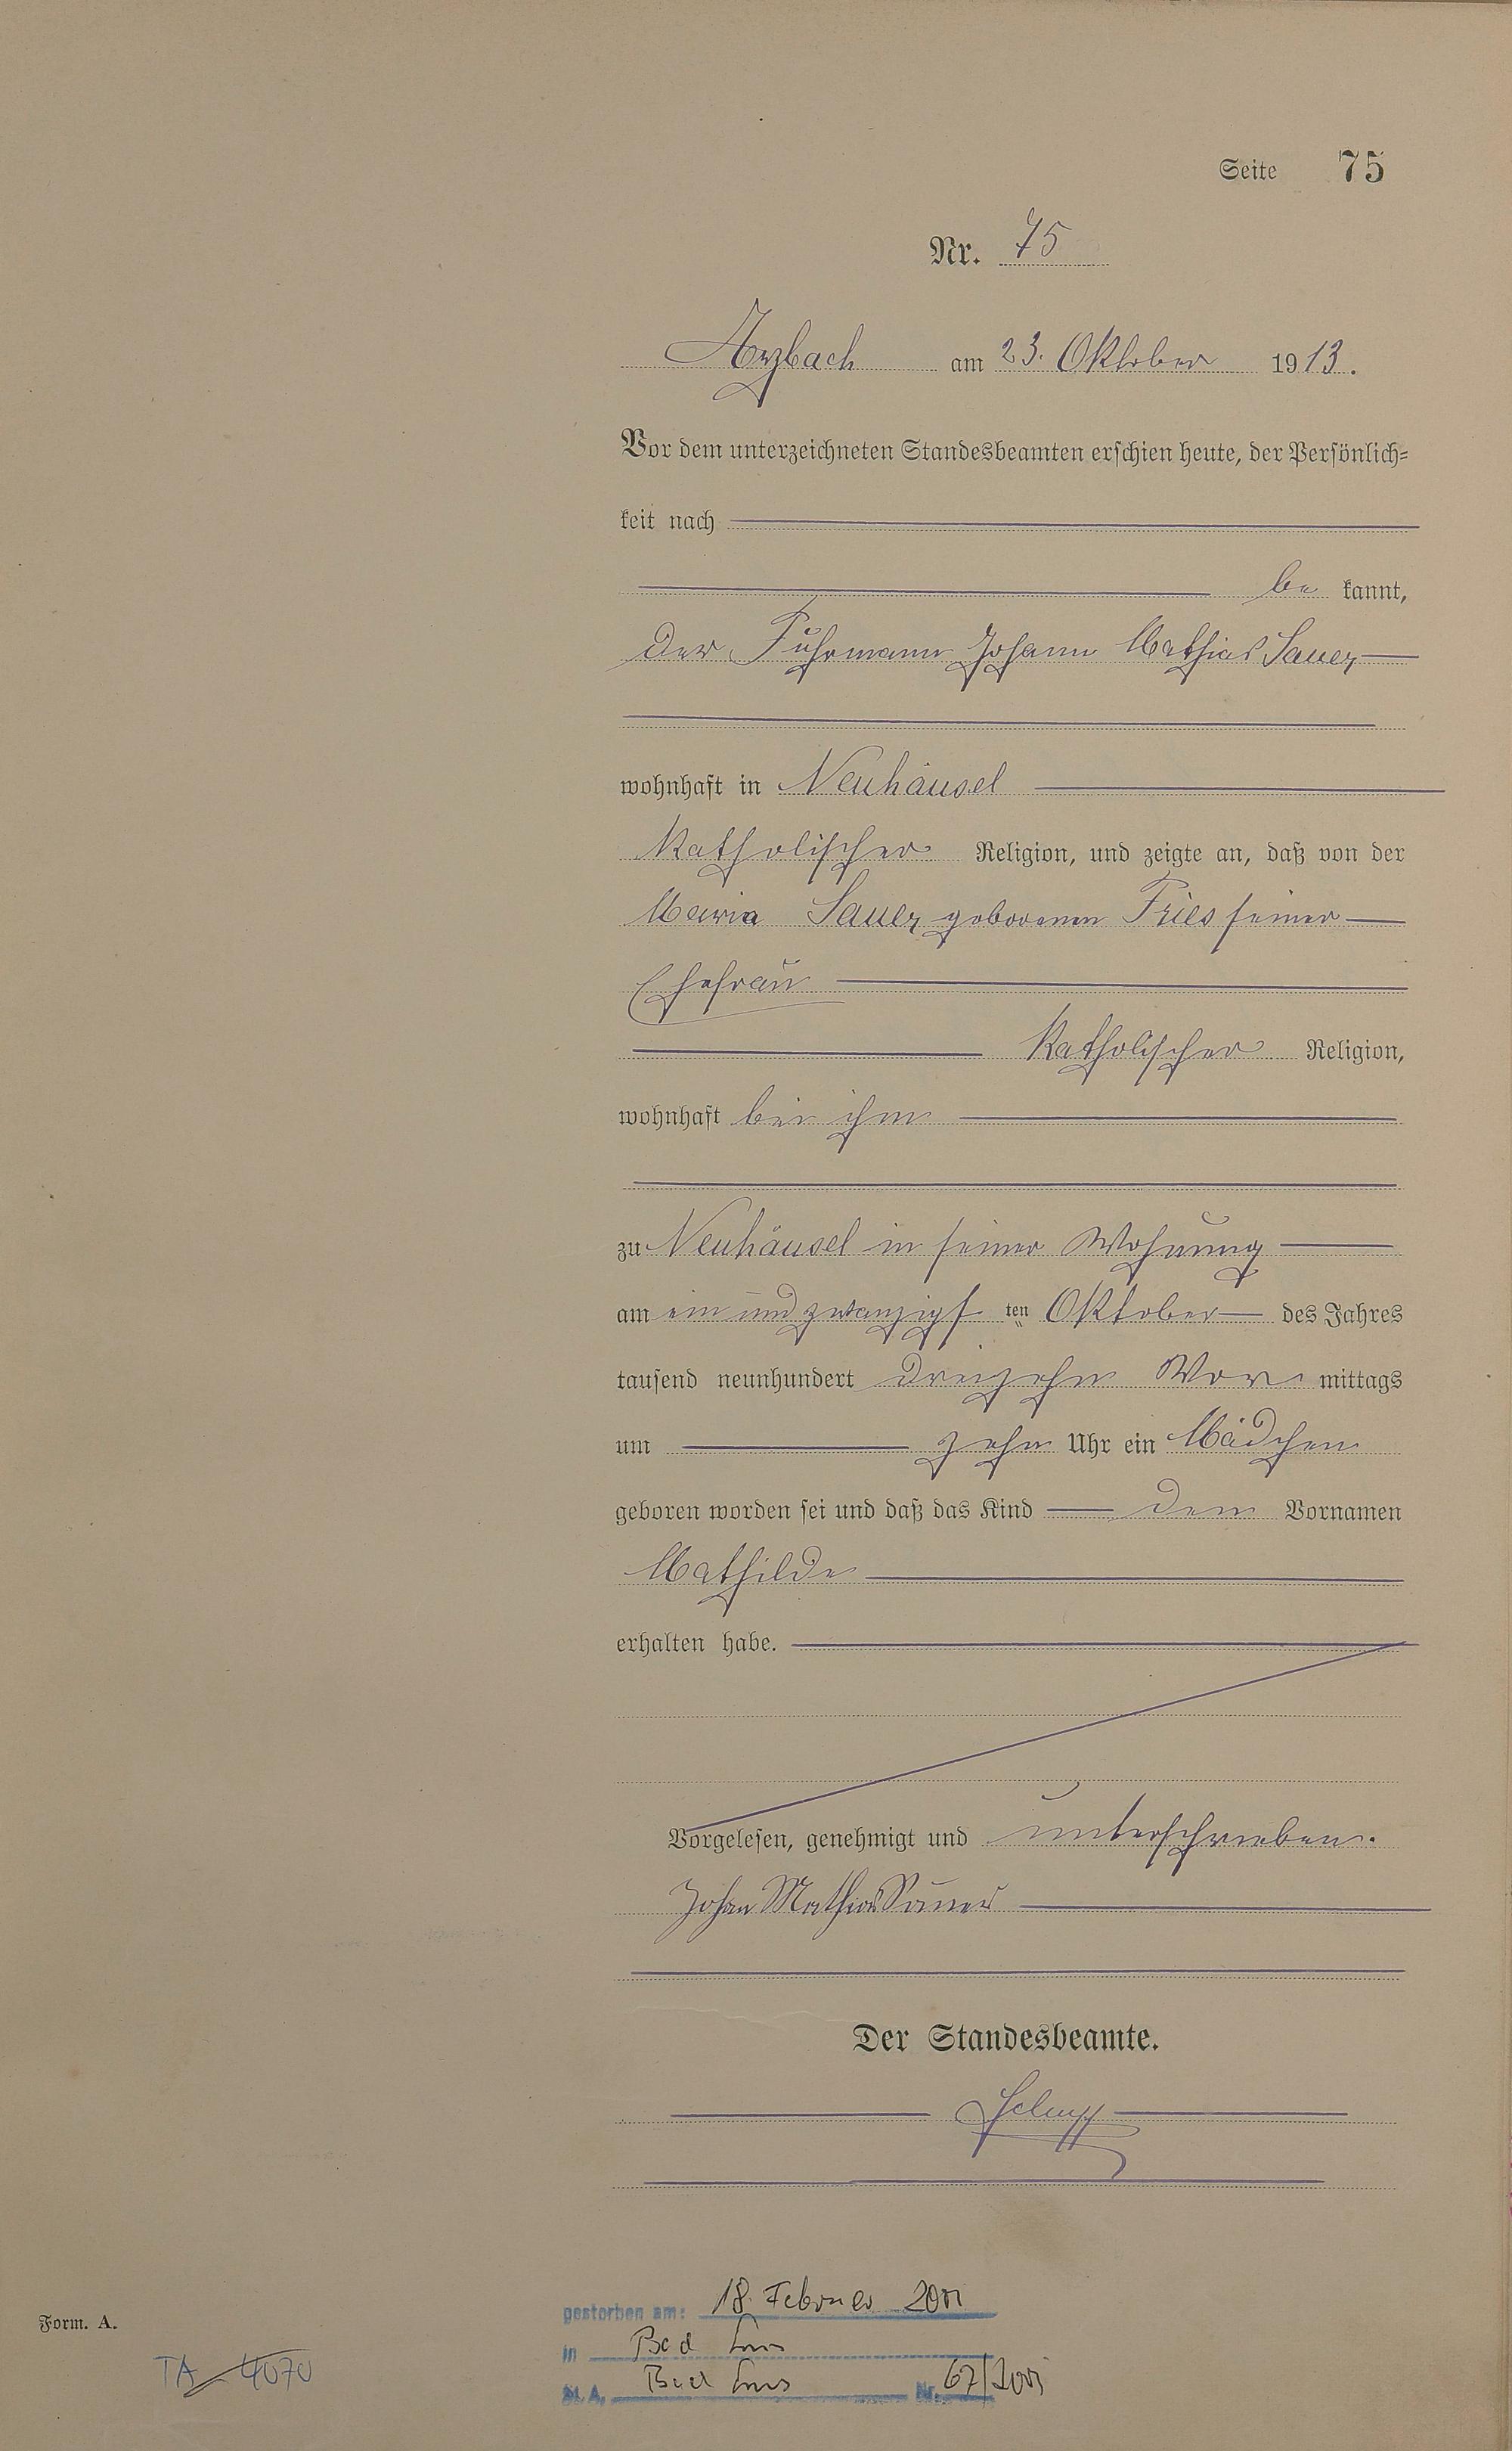 Seite 75
Nr. 75
Arzbach am 23. Oktober 1913.
Vor dem unterzeichneten Standesbeamten erschien heute, der Persönlich=
keit nach
be kannt,
der Fuhrmann Johann Mathias Sauer
wohnhaft in Neuhäusel
katholischer Religion, und zeigte an, daß von der
Maria Sauer geborenen Fries seiner
Ehefrau
katholischer Religion,
wohnhaft bei ihm
zu Neuhäusel in seiner Wohnung
am ein und zwanzigs ten Oktober des Jahres
tausend neunhundert dreizehn Vor mittags
um zehn Uhr ein Mädchen
geboren worden sei und daß das Kind den Vornamen
Mathilde
erhalten habe.
Vorgelesen, genehmigt und unterschrieben.
Johan Mathias Sauer
Der Standesbeamte.
gestorben am: 18. Februar
in Bad Ems
St. A. Bad Ems Nr. 67/2001
Form. A.
TA 4070